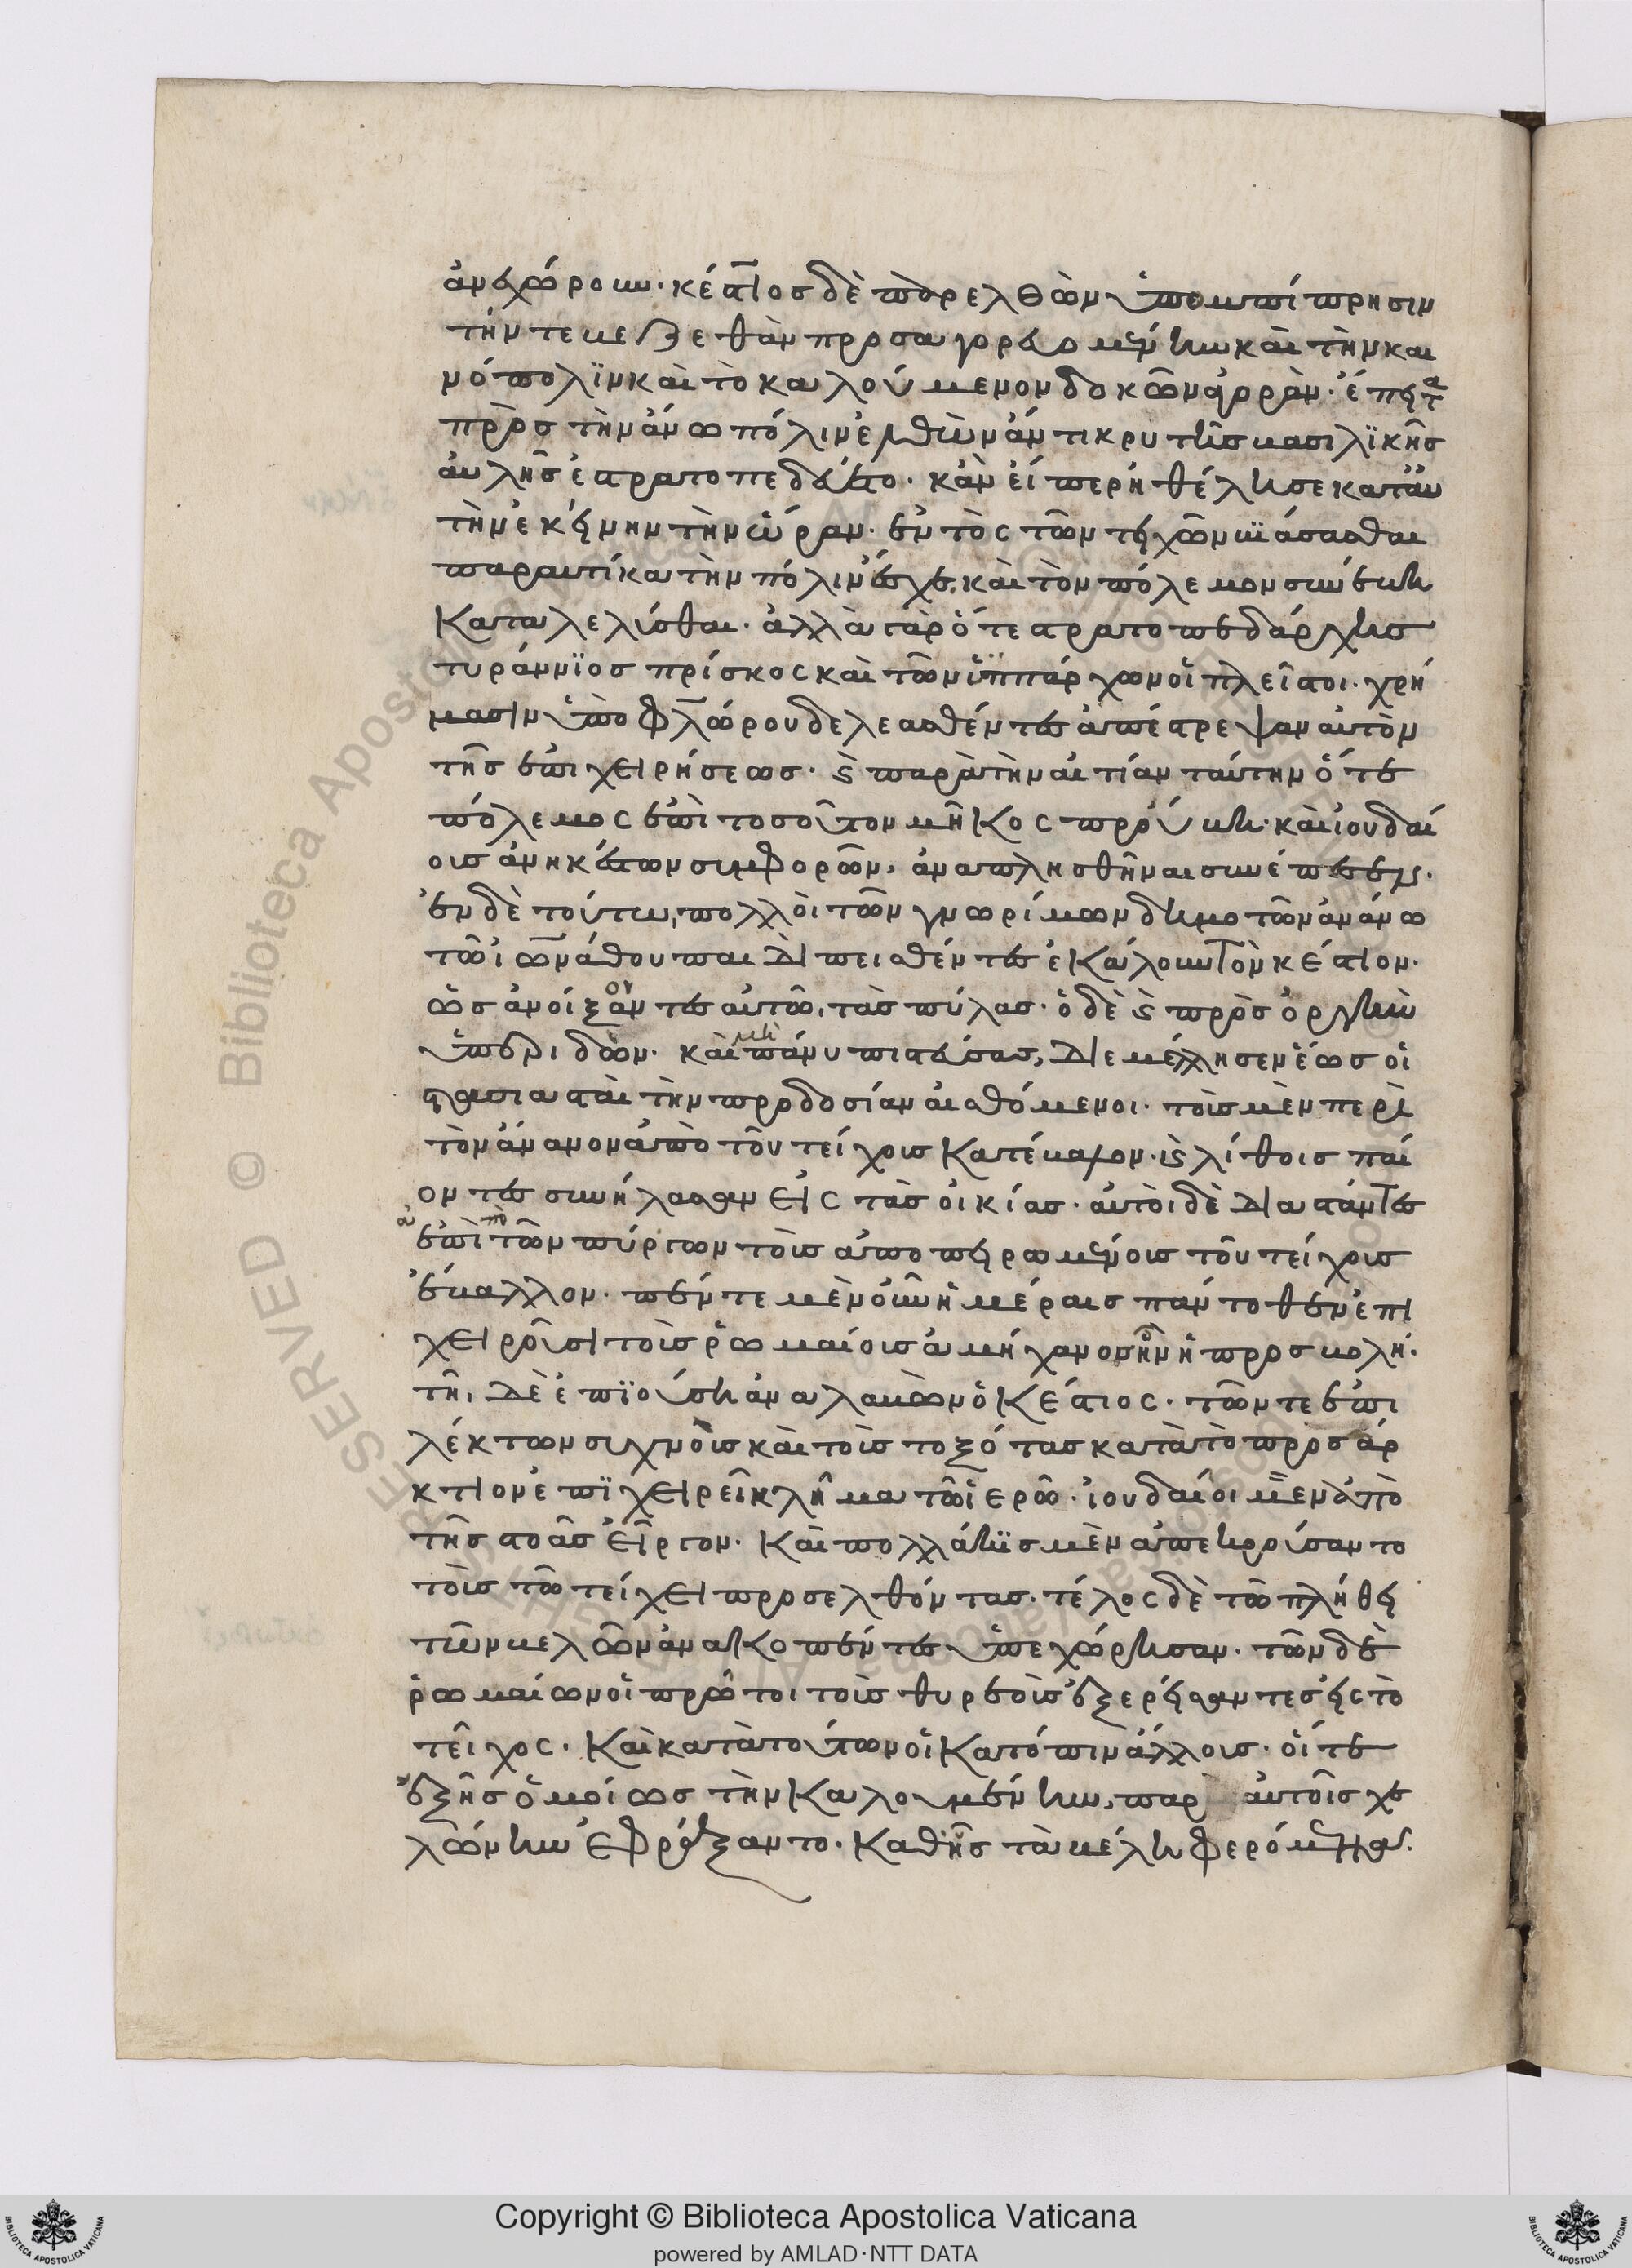 ἀνεχώρουν. κέστιος δὲ παρελθὼν ὑπεμπίπρησιν
τήν τε βεζεθὰν προσαγορευομένην καὶ τὴν και
νόπολϊν καὶ τὸ καλούμενον δοκῶν ἀρρὰν. ἔπειτα
πρὸς τὴν ἄνω πόλιν ἐλθὼν ἄντικρυ τῆς βασιλϊκῆς
αὐλῆς ἐστρατοπεδεύετο. κἂν εἴπερ ἠθέλησε κατ' αὐ
τὴν ἐκείνην τὴν ὥραν. ἐντὸς τῶν τειχῶν βϊάσασθαι
παραυτίκα τὴν πόλιν ἔσχε, καὶ τὸν πόλεμον συνέβη
καταλελύσθαι. ἀλλὰ γὰρ ὅ τε στρατοπεδάρχης
τυράννϊος πρίσκος καὶ τῶν ἱππάρχων οἱ πλεῖστοι. χρή
μασιν ὑπὸ φλώρου δελεασθέντες ἀπέστρεψαν αὐτὸν
τῆς ἐπιχειρήσεως. καὶ παρὰ τὴν αἰτίαν ταύτην ὅ τε
πόλεμος ἐπὶ τοσοῦτον μῆκος προύβη. καὶ ἰουδαί
οις ἀνηκέστων συμφορῶν, ἀναπλησθῆναι συνέπεσεν.
ἐν δὲ τούτω, πολλοὶ τῶν γνωρίμων δημοτῶν ἀνάνω
τῶ ἰωνάθου παιδὶ πεισθέντες ἐκάλουν τὸν κέστιον.
ὡς ἀνοίξοντες αὐτῶ, τὰς πύλας. ὁ δὲ καὶ πρὸς ὀργὴν
ὑπεριδὼν. καὶ μὴ πάνυ πιστεύσας, διεμέλλησεν ἕως οἱ
στασιασταὶ τὴν προδοσίαν αἰσθόμενοι. τοὺς μὲν περὶ
τὸν ἄνανον ἀπὸ τοῦ τείχους κατέβαλον. καὶ λίθοις παί
οντες συνήλασαν εἰς τὰς οἰκίας. αὐτοὶ δὲ διαστάντες
ἐπὶ τῶν πύργων τοὺς ἀποπειρωμένους τοῦ τείχους
ἔβαλλον. πέντε μὲν οὖν ἡμέραις πάντοθεν ἐπι
χειροῦσι τοῖς ῥωμαίοις ἀμήχανος ἦν ἡ προσβολή.
τῆ, δὲ ἐπϊούση ἀναλαβὼν ὁ κέστιος. τῶν τε ἐπι
λέκτων συχνοὺς καὶ τοὺς τοξότας κατὰ τὸ προσάρ
κτιον ἐπϊχειρεῖ κλῆμα τῶ ἱερῶ. ἰουδαῖοι μὲν ἀπὸ
τῆς στοᾶς εἶργον. καὶ πολλάκϊς μὲν ἀπεκρούσαντο
τοὺς τῶ τείχει προσελθόντας. τέλος δὲ τῶ πλήθει
τῶν βελῶν ἀνακοπέντες ὑπεχώρησαν. τῶν δὲ
ῥωμαίων οἱ πρῶτοι τοὺς θυρεοὺς ἐξερείσαντες εἰς τὸ
τεῖχος. καὶ κατὰ τούτων οἱ κατόπιν ἄλλους. οἵ τε
ἑξῆς ὁμοίως τὴν καλουμένην, παρ αὐτοῖς χε
λώνην ἐφράξαντο. καθ' ἧς τὰ βέλη φερόμενα.